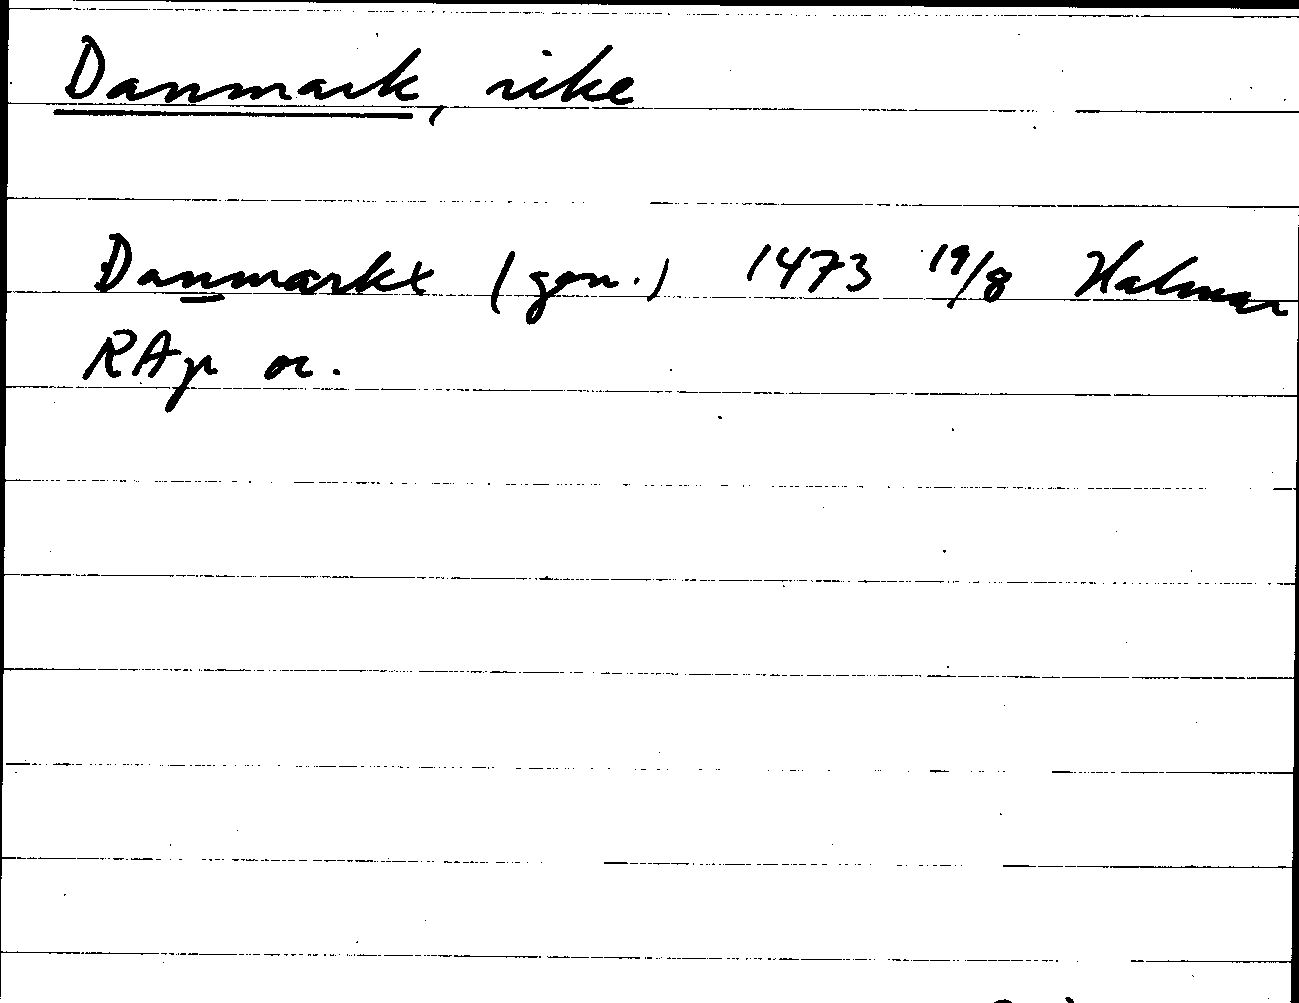 Danmark, rike
Danmarkx (gen.) 1473 19/8 Kalmar
RAp or.